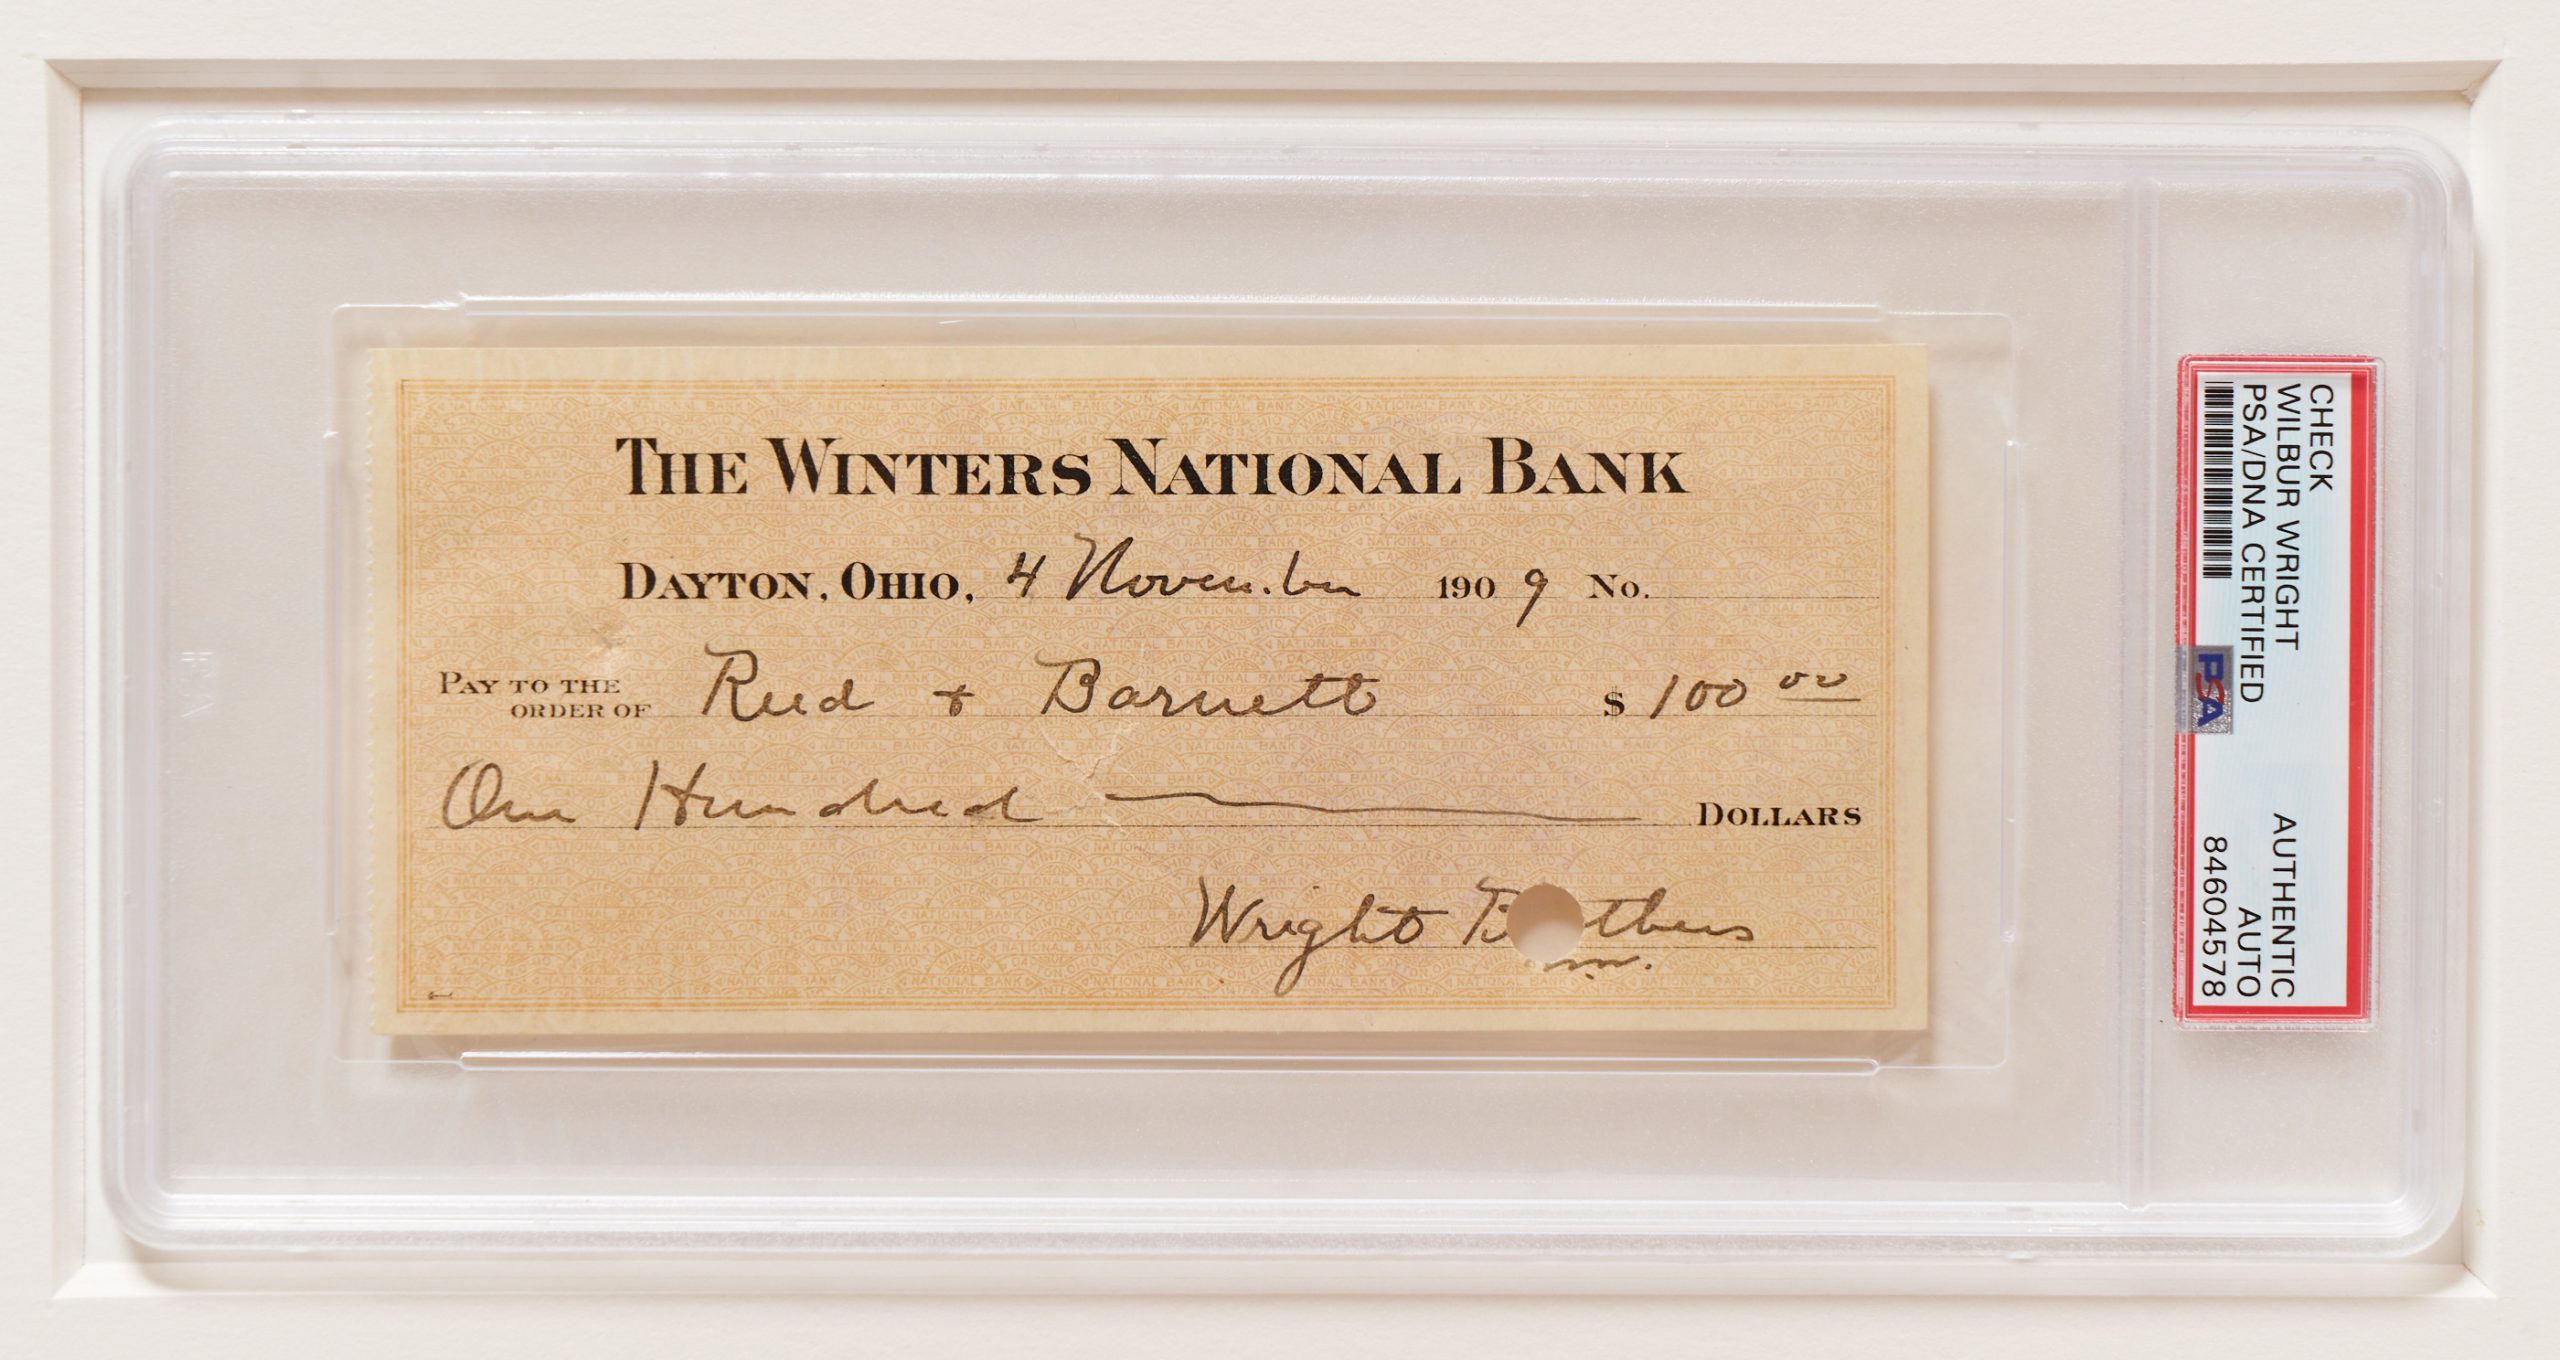 THE WINTERS NATIONAL BANK
DAYTON, OHIO, 4 November 1909 No.
PAY TO THE ORDER OF Reed + Barnett $ 100 00
One Hundred DOLLARS
Wright Brothers
CHECK
WILBUR WRIGHT
PSA/DNA CERTIFIED
PSA
AUTHENTIC
AUTO
84604578